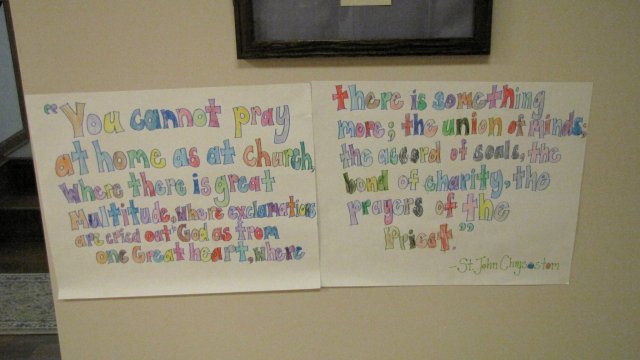 "You cannot pray
at home as at church,
Where there is great
Multitude, where exclamations
are cried out to God as from
one Great heart, where
there is something
more; the union of Minds,
the accord of souls, the
bond of charity, the
prayers of the
Priest."
-St. John Chrysostom